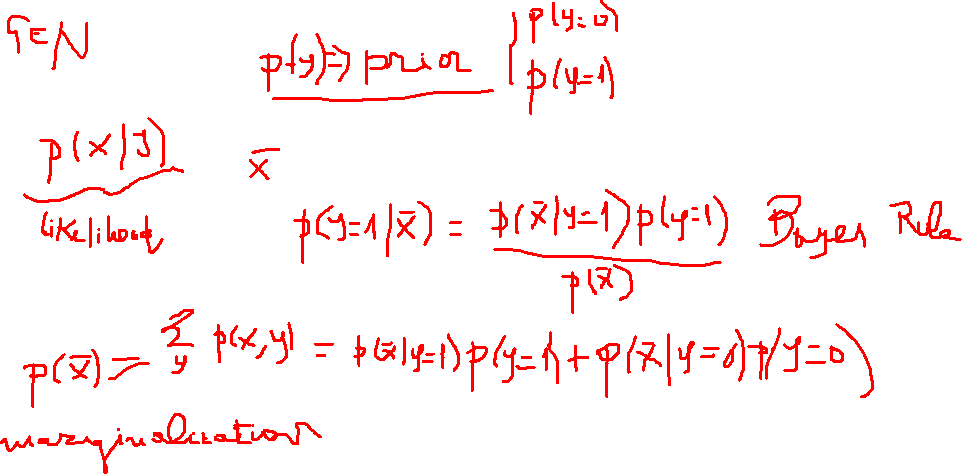 GEN
p(y) => prior { p(y=0)
p(y=1)
p(x|y) x̄
likelihood
p(y=1|x̄) = p(x̄|y=1) p(y=1) Bayes Rule
p(x̄)
p(x̄) = Σ p(x,y) = p(x̄|y=1) p(y=1) + p(x̄|y=0) p(y=0)
y
marginalization